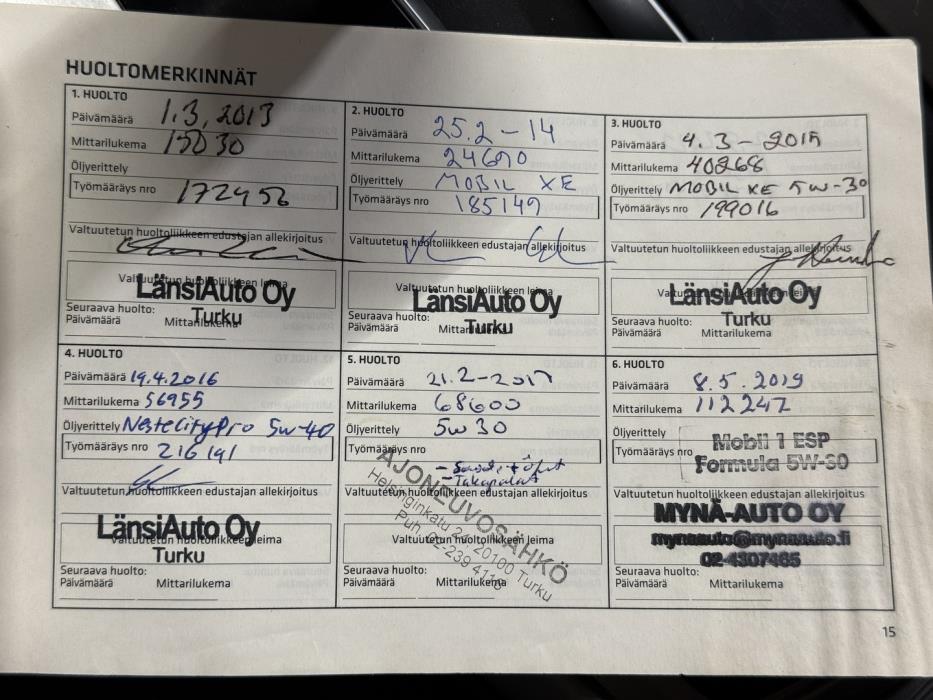 HUOLTOMERKINNÄT
1. HUOLTO
Päivämäärä 1.3, 2013
Mittarilukema 15030
Öljyerittely
Työmääräys nro 172956
Valtuutetun huoltoliikkeen edustajan allekirjoitus
Valtuutetun huoltoliikkeen leima
LänsiAuto Oy
Turku
Seuraava huolto:
Päivämäärä Mittarilukema
2. HUOLTO
Päivämäärä 25.2-14
Mittarilukema 24690
Öljyerittely MOBIL XE
Työmääräys nro 185149
Valtuutetun huoltoliikkeen edustajan allekirjoitus
Valtuutetun huoltoliikkeen leima
LänsiAuto Oy
Turku
Seuraava huolto:
Päivämäärä Mittarilukema
3. HUOLTO
Päivämäärä 4.3-2015
Mittarilukema 40268
Öljyerittely MOBIL XE 5W-30
Työmääräys nro 199016
Valtuutetun huoltoliikkeen edustajan allekirjoitus
Valtuutetun huoltoliikkeen leima
LänsiAuto Oy
Turku
Seuraava huolto:
Päivämäärä Mittarilukema
4. HUOLTO
Päivämäärä 19.4.2016
Mittarilukema 56955
Öljyerittely Neste City Pro 5w-40
Työmääräys nro 216191
Valtuutetun huoltoliikkeen edustajan allekirjoitus
Valtuutetun huoltoliikkeen leima
LänsiAuto Oy
Turku
Seuraava huolto:
Päivämäärä Mittarilukema
5. HUOLTO
Päivämäärä 21.2-2017
Mittarilukema 68600
Öljyerittely 5w30
Työmääräys nro
- Takapalat
Valtuutetun huoltoliikkeen edustajan allekirjoitus
Valtuutetun huoltoliikkeen leima
AJONEUVOSÄHKÖ
Helsinginkatu 2, 20100 Turku
Puh. 02-239 4118
Seuraava huolto:
Päivämäärä Mittarilukema
6. HUOLTO
Päivämäärä 8.5.2019
Mittarilukema 112247
Öljyerittely
Työmääräys nro
Mobil 1 ESP
Formula 5W-30
Valtuutetun huoltoliikkeen edustajan allekirjoitus
MYNÄ-AUTO OY
mynaauto@mynaauto.fi
02-4307465
Seuraava huolto:
Päivämäärä Mittarilukema
15